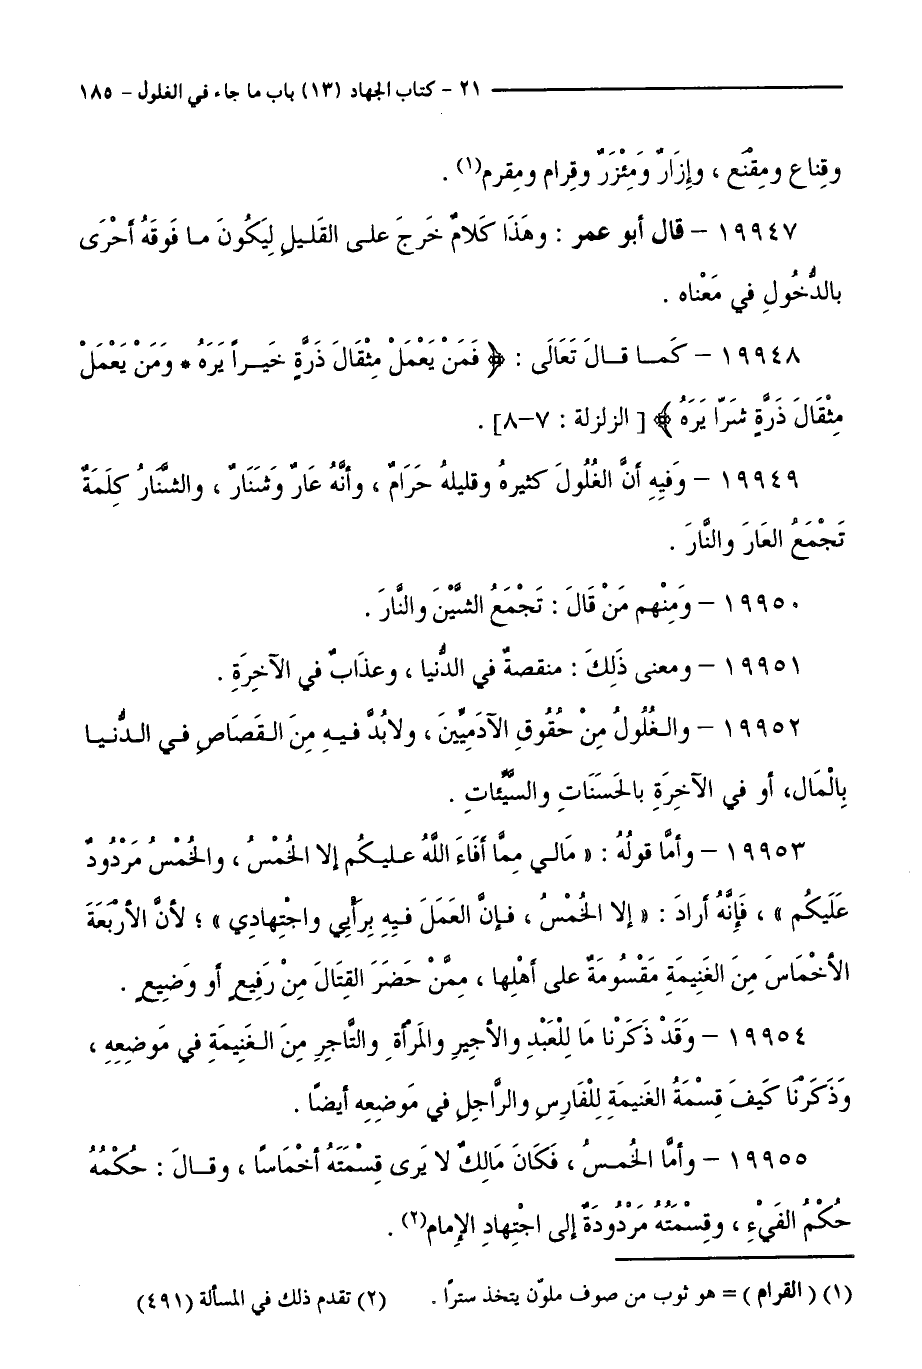 ٢١ - كتاب الجهاد (١٣) باب ما جاء في الغلول - ١٨٥
وقِناع ومِقْنَع ، وإزَارٌ وَمِئْزَرٌ وقِرام ومِقرم(١) .
١٩٩٤٧ – قال أبو عمر : وهَذَا كَلامٌ خَرجَ على القَليلِ لِيَكُونَ ما فَوقَهُ أحْرَى
بالدُّخُولِ في مَعْناه .
١٩٩٤٨ – كَما قالَ تَعَالَى : ﴿ فَمَنْ يَعْمَلْ مِثْقَالَ ذَرَّةٍ خَيراً يَرَهُ * وَمَنْ يَعْمَلْ
مِثْقَالَ ذَرَّةٍ شرَّا يَرَهُ ﴾ [ الزلزلة : ٧–٨] .
١٩٩٤٩ – وَفيهِ أنَّ الغُلُولَ كثيرهُ وقليلهُ حَرَامٌ ، وأنَّهُ عَارٌ وَشَنَارٌ ، والشَّنَارُ كلِمَةٌ
تَجْمَعُ العَارَ والنَّارَ .
١٩٩٥٠ – وَمِنْهم مَنْ قَالَ : تَجْمَعُ الشَّيْنَ والنَّارَ .
١٩٩٥١ – ومعنى ذَلِكَ : منقصةٌ في الدُّنيا ، وعذَابٌ في الآخِرَةِ .
١٩٩٥٢ – والغُلُولُ مِنْ حُقُوقِ الآدَمِيِّينَ ، ولابُدَّ فيهِ مِنَ القَصَاصِ في الدُّنيا
بِالْمَال، أو في الآخِرَةِ بالحَسَنَاتِ والسيَّئَاتِ .
١٩٩٥٣ – وأمَّا قولُهُ : « مَالي مِمَّا أفَاءَ اللَّهُ عليكُم إلا الخُمْسُ ، والخُمْسُ مَرْدُودٌ
عَلَيكُم » ، فَإنَّهُ أرادَ : « إلا الخُمْسُ ، فإنَّ العَمَلَ فيهِ بِرَأْيي واجْتِهادِي » ؛ لأنَّ الأرْبَعَةَ
الأخْماسَ مِنَ الغَنِيمَةِ مَقْسُومَةٌ على أهْلِها ، مِمَّنْ حَضَرَ القِتَالَ مِنْ رَفيعٍ أو وَضِيعٍ .
١٩٩٥٤ – وَقَدْ ذَكَرْنا مَا لِلْعَبْدِ والأجيرِ والمَرْأة والتَّاجرِ مِنَ الغَنِيمَةِ في مَوضِعِهِ ،
وَذَكَرْنَا كَيفَ قِسْمَةُ الغَنيمَةِ لِلْفَارِسِ والرَّاجلِ في مَوضِعِه أيضًا .
١٩٩٥٥ – وأمَّا الخُمسُ ، فَكَانَ مَالِكٌ لا يَرى قِسْمَتَهُ أخْماسًا ، وقالَ : حُكْمُهُ
حُكْمُ الفَيْءِ ، وقِسْمَتُهُ مَرْدُودَةٌ إلى اجْتِهادِ الإمام(٢) .
(١) ( القرام ) = هو ثوب من صوف ملوّن يتخذ سترًا . (٢) تقدم ذلك في المسألة (٤٩١)